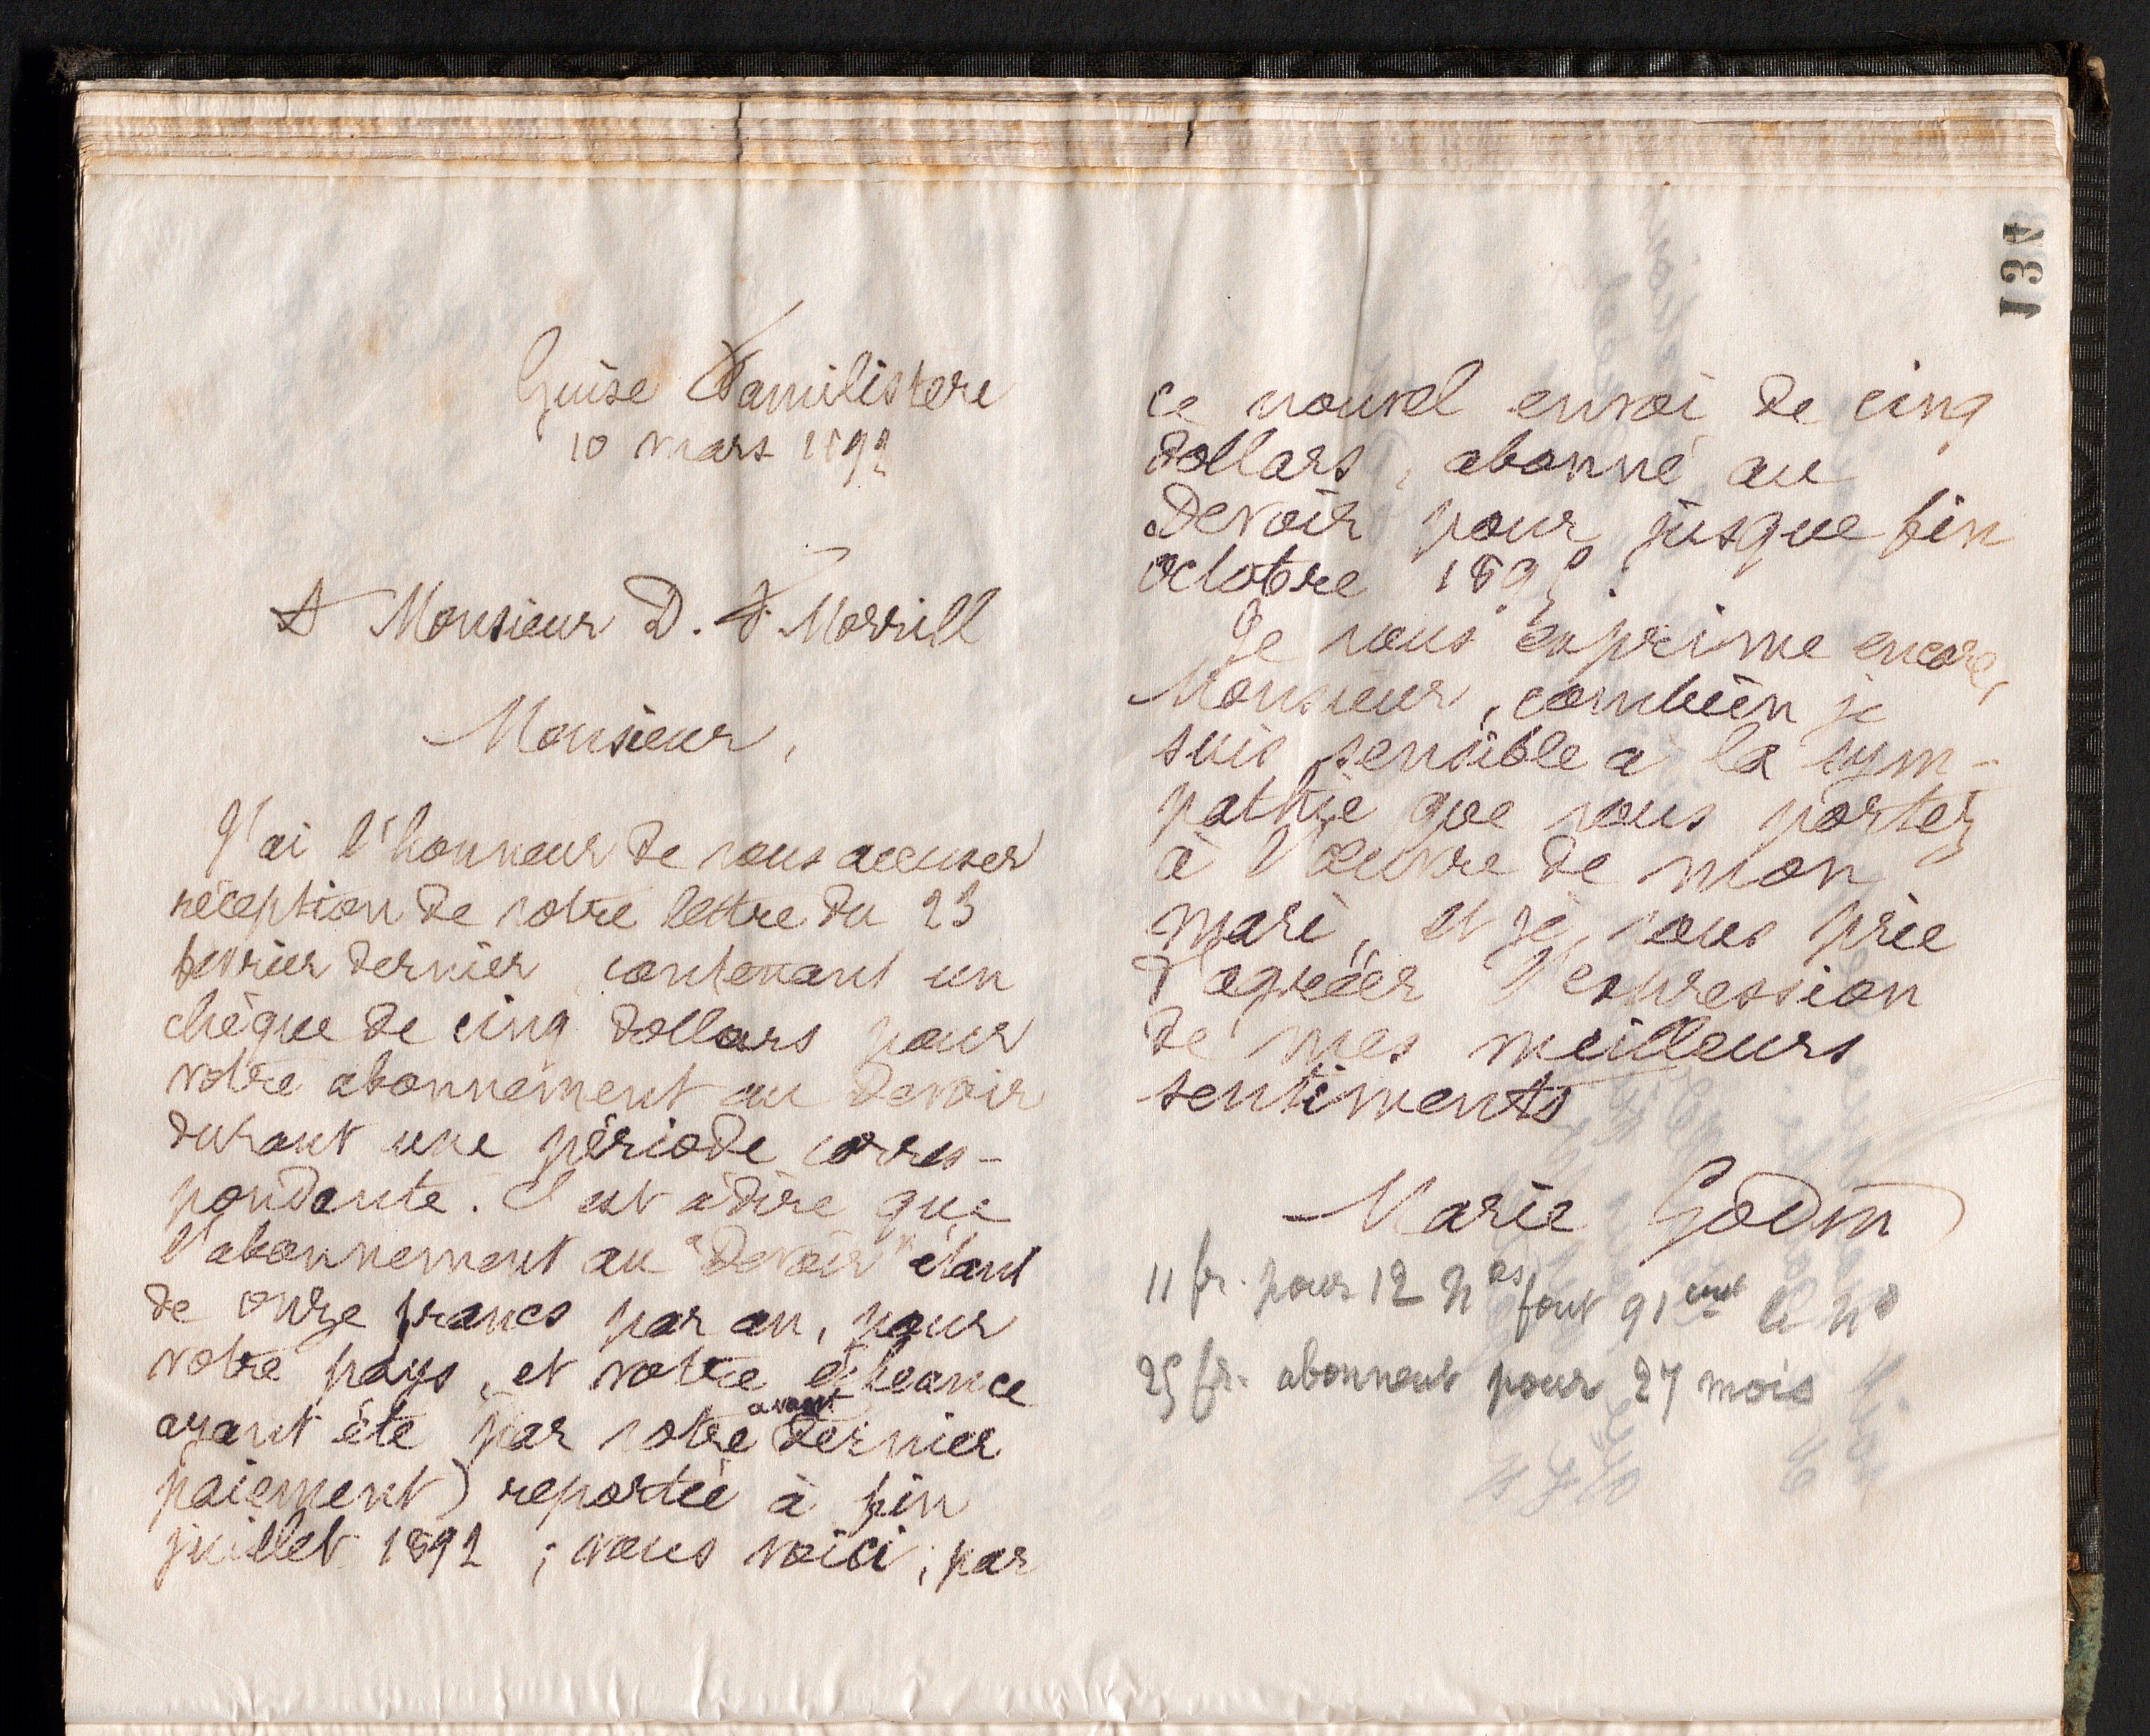 134
Guise Familistere
10 mars 1892
A Monsieur D. F. Morrill
Monsieur,
J'ai l'honneur de vous accuser
réception de votre lettre du 23
fevrier dernier, contenant un
chèque de cinq dollars pour
votre abonnement au Devoir
durant une période corres-
pondante. C'est à dire que
l'abonnement au "Devoir" étant
de onze francs par an, pour
votre pays, et votre échéance
ayant été (par votre avant dernier
paiement) reportée à fin
juillet 1892 ; vous voici, par
ce nouvel envoi de cinq
dollars, abonné au
Devoir pour jusque fin
octobre 1894.
Je vous exprime encore,
Monsieur, combien je
suis sensible à la sym-
pathie que vous portez
à l'œuvre de mon
mari, et je vous prie
d'agréer l'expression
de mes meilleurs
sentiments
Marie Godin
11 fr. pour 12 nos font 91 cent le no
25 fr. abonnent pour 27 mois